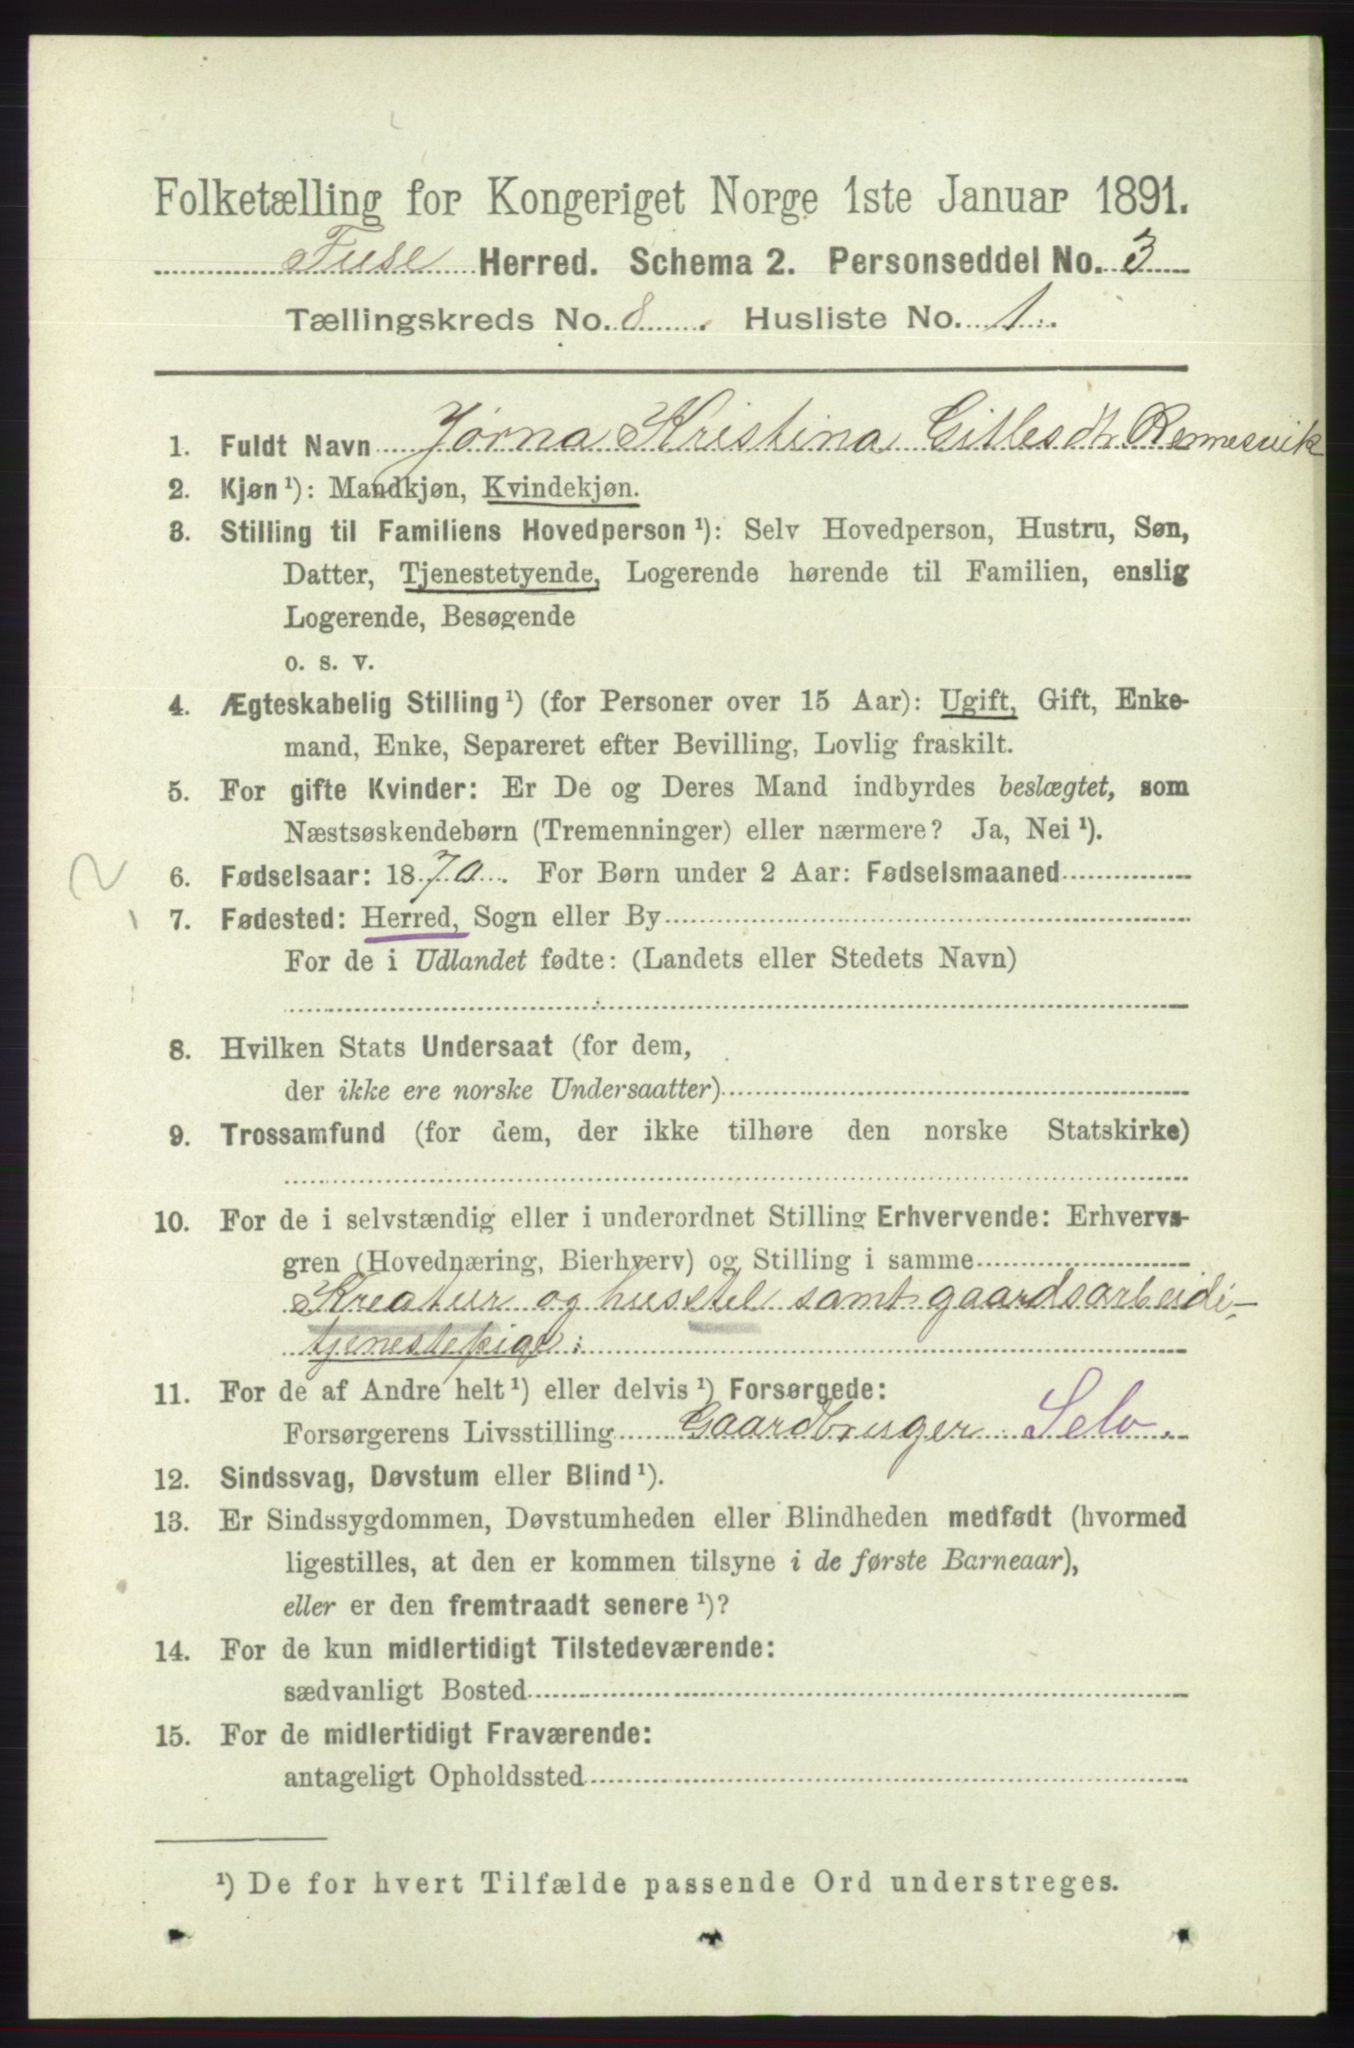 Folketælling for Kongeriget Norge 1ste Januar 1891.
Fuse Herred. Schema 2. Personseddel No. 3
Tællingskreds No. 8. Husliste No. 1.
1. Fuldt Navn Jorna Kristina Gillesdtr Rennesvik
2. Kjøn ¹): Mandkjøn, Kvindekjøn.
3. Stilling til Familiens Hovedperson ¹): Selv Hovedperson, Hustru, Søn,
Datter, Tjenestetyende, Logerende hørende til Familien, enslig
Logerende, Besøgende
o. s. v.
4. Ægteskabelig Stilling ¹) (for Personer over 15 Aar): Ugift, Gift, Enke-
mand, Enke, Separeret efter Bevilling, Lovlig fraskilt.
5. For gifte Kvinder: Er De og Deres Mand indbyrdes beslægtet, som
Næstsøskendebørn (Tremenninger) eller nærmere? Ja, Nei ¹).
2
6. Fødselsaar: 1870. For Børn under 2 Aar: Fødselsmaaned
7. Fødested: Herred, Sogn eller By
For de i Udlandet fødte: (Landets eller Stedets Navn)
8. Hvilken Stats Undersaat (for dem,
der ikke ere norske Undersaatter)
9. Trossamfund (for dem, der ikke tilhøre den norske Statskirke)
10. For de i selvstændig eller i underordnet Stilling Erhvervende: Erhvervs-
gren (Hovednæring, Bierhverv) og Stilling i samme
Kreatur og husstel samt gaardsarbeidi-
tjenestepige:
11. For de af Andre helt ¹) eller delvis ¹) Forsørgede:
Forsørgerens Livsstilling Gaardbruger Selv.
12. Sindssvag, Døvstum eller Blind ¹).
13. Er Sindssygdommen, Døvstumheden eller Blindheden medfødt (hvormed
ligestilles, at den er kommen tilsyne i de første Barneaar),
eller er den fremtraadt senere ¹)?
14. For de kun midlertidigt Tilstedeværende:
sædvanligt Bosted
15. For de midlertidigt Fraværende:
antageligt Opholdssted
¹) De for hvert Tilfælde passende Ord understreges.